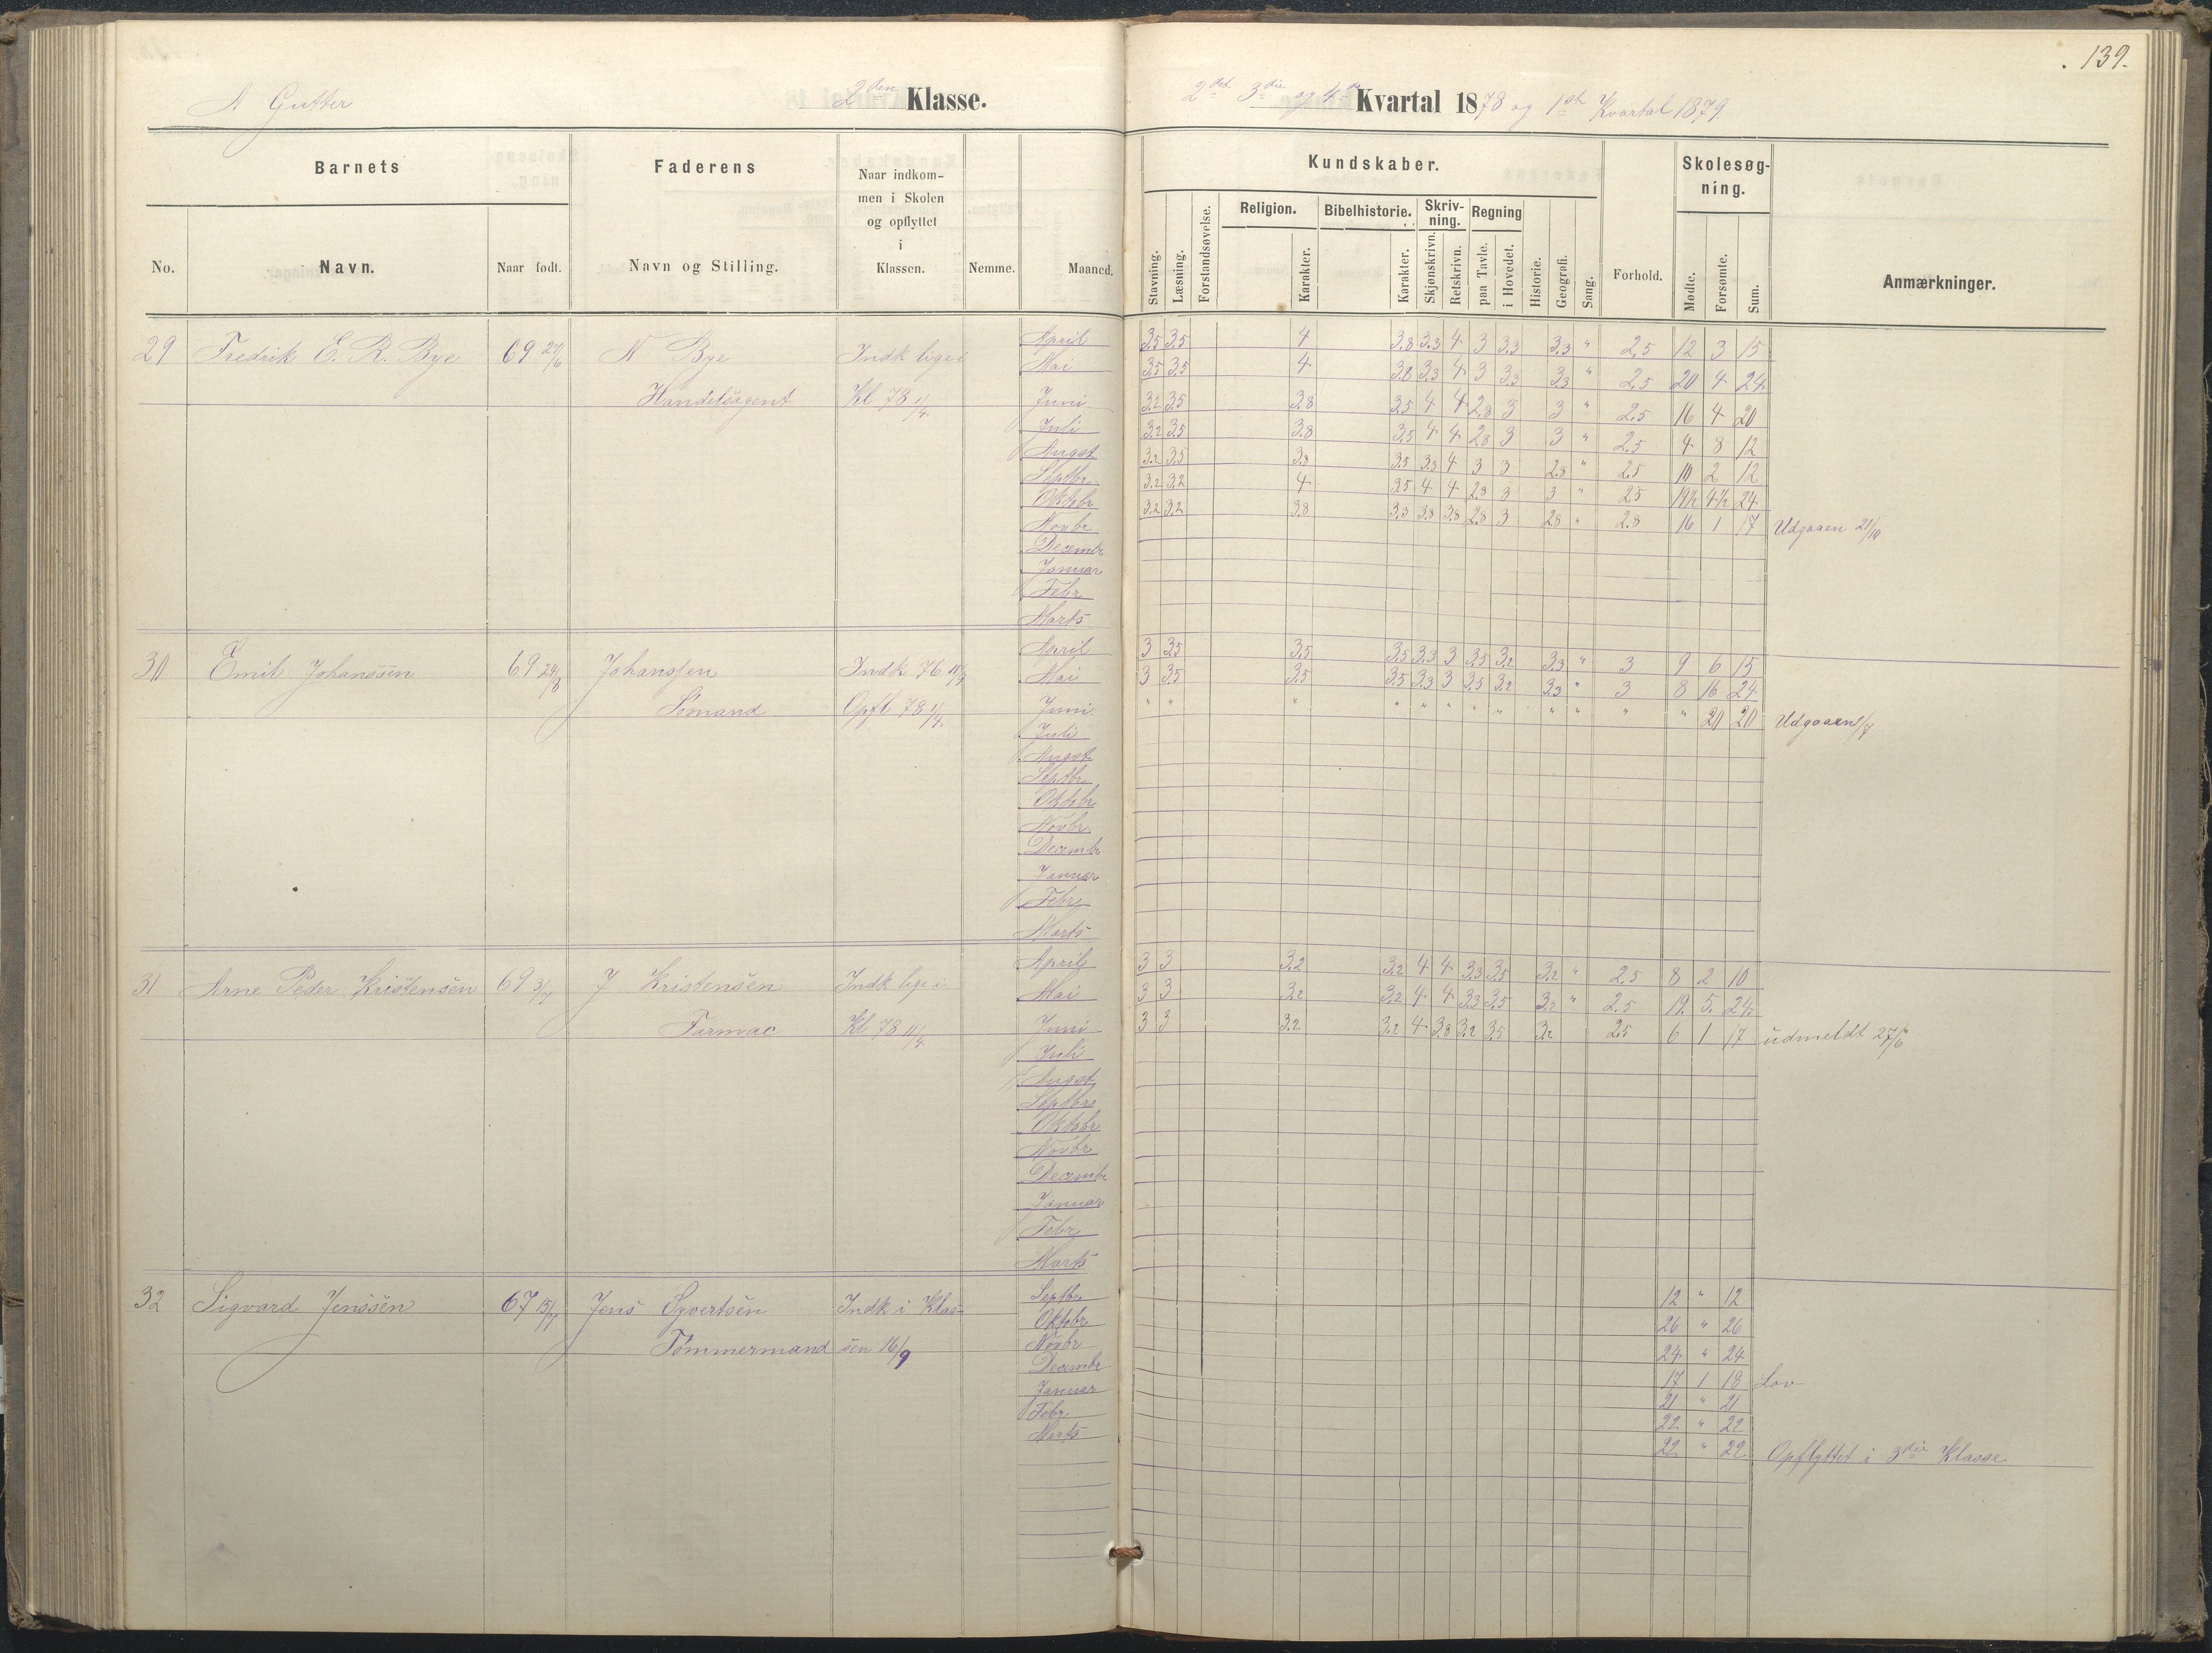 139.
A Gutter 2den Klasse. 2det 3die og 4de Kvartal 1878 og 1ste Kvartal 1879
Barnets Faderens Naar indkommen i Skolen og opflyttet i Klassen. Nemme. Maaned. Kundskaber. Forhold. Skolesøgning. Anmærkninger.
No. Navn. Naar født. Navn og Stilling.
Stavning. Læsning. Forstandsøvelse. Religion. Karakter. Bibelhistorie. Karakter. Skrivning. Skjønskrivn. Retskrivn. Regning paa Tavle. i Hovedet. Historie. Geografi. Sang. Mødte. Forsømte. Sum.
29 Fredrik E. R. Bye 69 27/6 N Bye Indk lige i
Handelsagent Kl 78 1/4.
April 3.5 3.5 4 3.8 3.3 4 3 3.3 3.3 " 2.5 12 3 15
Mai 3.5 3.5 4 3.8 3.3 4 3 3.3 3.3 " 2.5 20 4 24
Juni 3.2 3.5 3.8 3.5 4 4 2.8 3 3 " 2.5 16 4 20
Juli 3.2 3.5 3.8 3.5 4 4 2.8 3 3 " 2.5 4 8 12
Augst 3.2 3.5 3.8 3.5 3.3 4 3 3 2.8 " 2.5 10 2 12
Septbr 3.2 3.2 4 3.5 4 4 2.8 3 3 " 2.5 19½ 4½ 24
Oktobr 3.2 3.2 3.8 3.3 3.8 3.8 2.8 3 2.8 " 2.8 16 1 17 Udgaaen 21/10
Novbr
Decembr
Januar
Febr
Marts
30 Emil Johanssen 69 24/8 Johanssen Indk 76
Sømand Opfl 78 1/4.
April 3 3.5 3.5 3.5 3.3 3 3.5 3.2 3.3 " 3 9 6 15
Mai 3 3.5 3.5 3.5 3.3 3 3.5 3.2 3.3 " 3 8 16 24
Juni " " " " " " " " " " " " 20 20 Udgaaen 1/7
Juli
Augst
Septbr
Oktobr
Novbr
Decembr
Januar
Febr
Marts
31 Arne Peder Kristensen 69 3/7 J Kristensen Indk lige i
Kl 78 11/4
April 3 3 3.2 3.2 4 4 3.3 3.5 3.2 " 2.5 8 2 10
Mai 3 3 3.2 3.2 4 4 3.3 3.5 3.2 " 2.5 19 5 24
Juni 3 3 3.2 3.2 4 3.8 3.2 3.5 3.2 2.5 6 1 17 udmeldt 27/6
Juli
Augst
Septbr
Oktobr
Novbr
Decembr
Januar
Febr
Marts
32 Sigvard Jenssen 67 15/7 Jens Syvertsen Indk i Klas-
Tømmermand sen 16/9
Septbr 12 " 12
Oktobr 26 " 26
Novbr 24 " 24
Decembr 17 1 18 Lov
Januar 21 " 21
Febr 22 " 22
Marts 22 " 22 Opflyttet i 3die Klasse